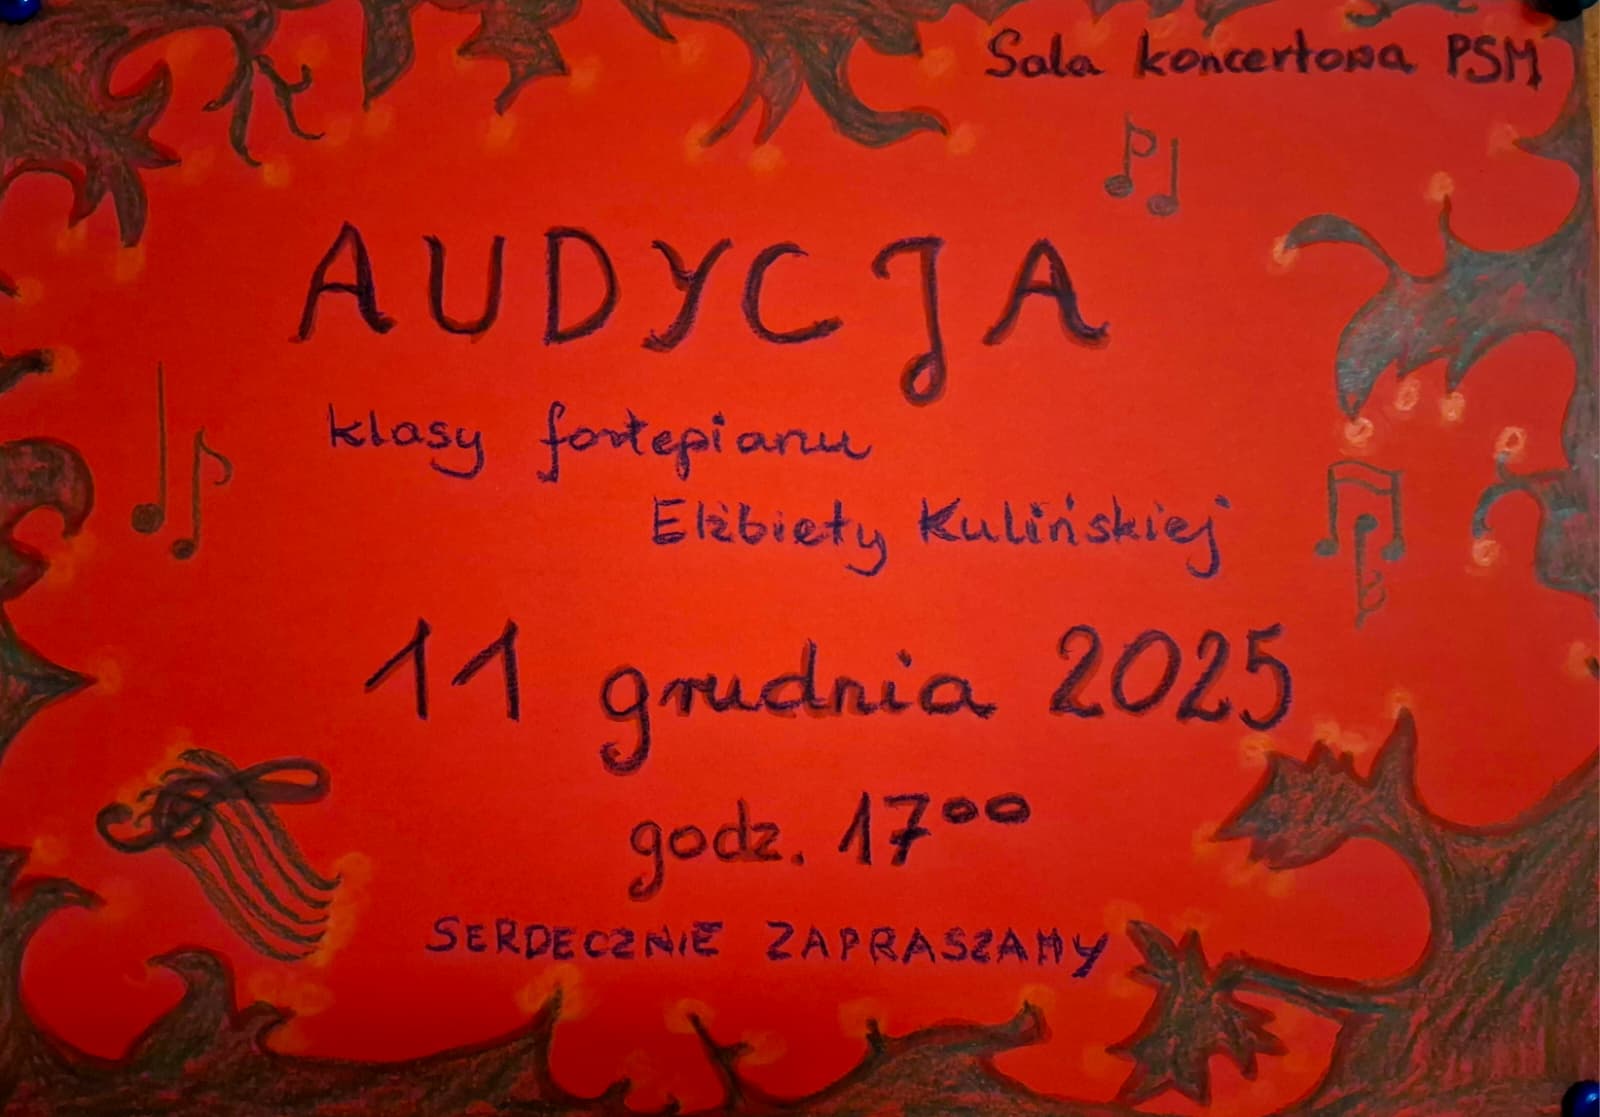 Sala koncertowa PSM
AUDYCJA
klasy fortepianu
Elżbiety Kulińskiej
11 grudnia 2025
godz. 17⁰⁰
SERDECZNIE ZAPRASZAMY